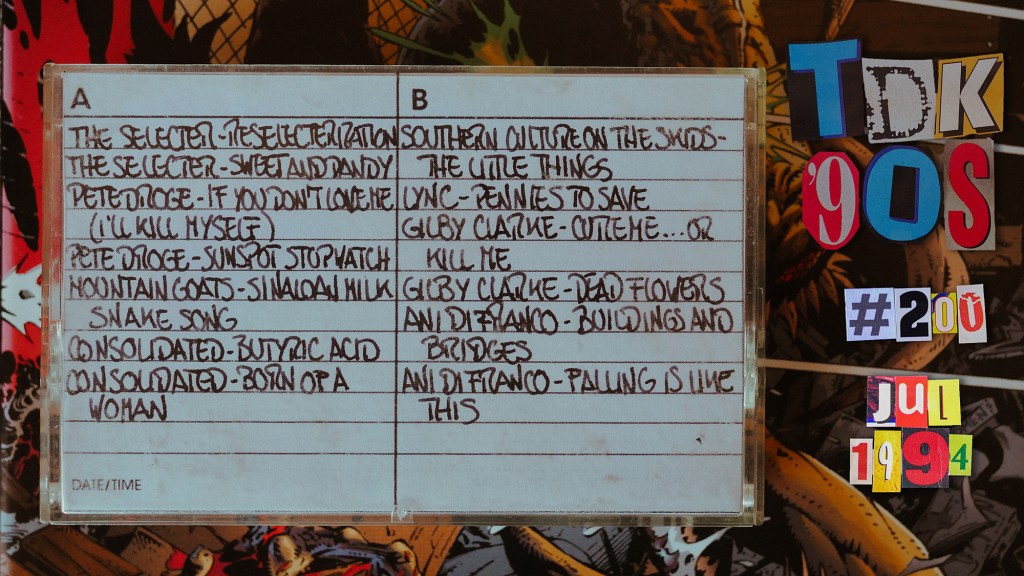 A
THE SELECTER - RESELECTERIZATION
THE SELECTER - SWEET AND DANDY
PETE DROGE - IF YOU DON'T LOVE ME
(I'LL KILL MYSELF)
PETE DROGE - SUNSPOT STOPWATCH
MOUNTAIN GOATS - SINALOAN MILK
SNAKE SONG
CONSOLIDATED - BUTYRIC ACID
CONSOLIDATED - BORN OF A
WOMAN
DATE/TIME
B
SOUTHERN CULTURE ON THE SKIDS -
THE LITTLE THINGS
LYNC - PENNIES TO SAVE
GILBY CLARKE - CURE ME...OR
KILL ME
GILBY CLARKE - DEAD FLOWERS
ANI DIFRANCO - BUILDINGS AND
BRIDGES
ANI DIFRANCO - FALLING IS LIKE
THIS
TDK
'90S
#200
JUL
1994